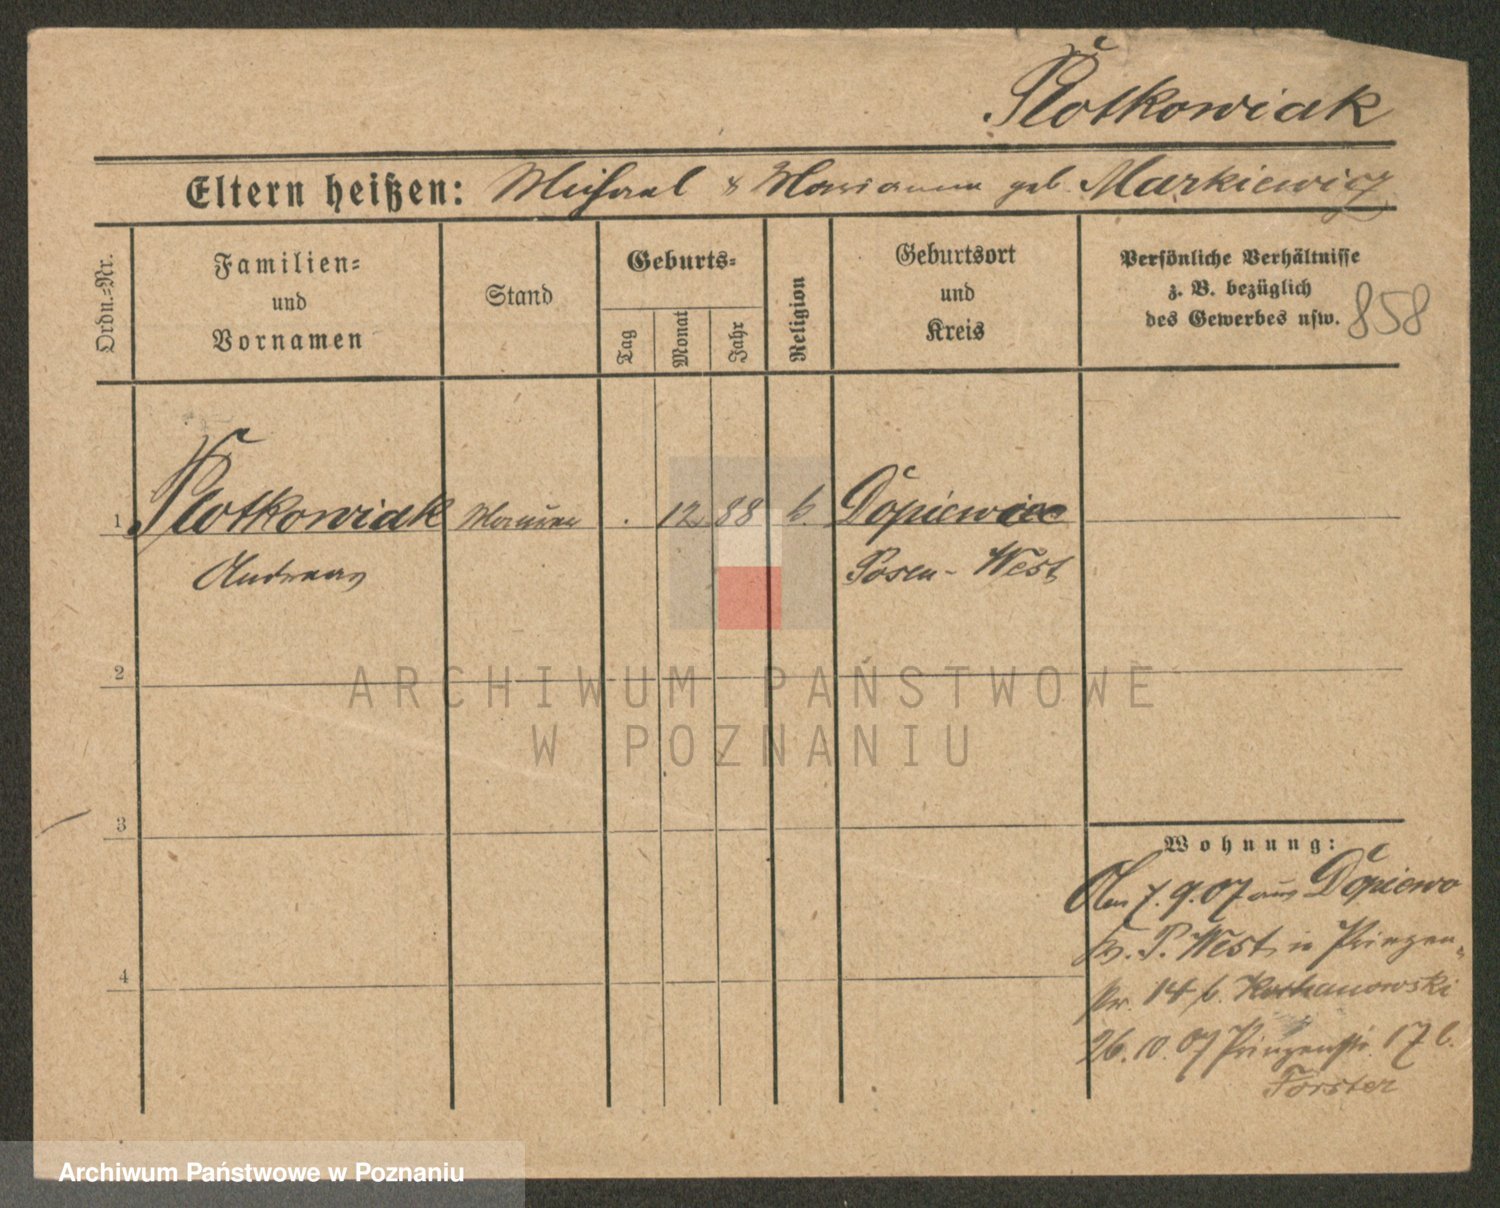 Plotkowiak
Eltern heißen: Michael & Marianna geb. Markiewicz
Ordn.-Nr.
Familien-
und
Vornamen
Stand
Geburts-
Tag
Monat
Jahr
Religion
Geburtsort
und
Kreis
Persönliche Verhältnisse
z. B. bezüglich
des Gewerbes usw.
858
1 Plotkowiak Maurer . 12 88 k. Dopiewiec
Andreas Posen-West
2
3
4
ARCHIWUM PAŃSTWOWE
W POZNANIU
Wohnung:
Am 7.9.07 aus Dopiewo
Kr. P. West in Prinzen-
str. 14 b. Kochanowski
26.10.07 Prinzenstr. 17 b.
Forster
Archiwum Państwowe w Poznaniu